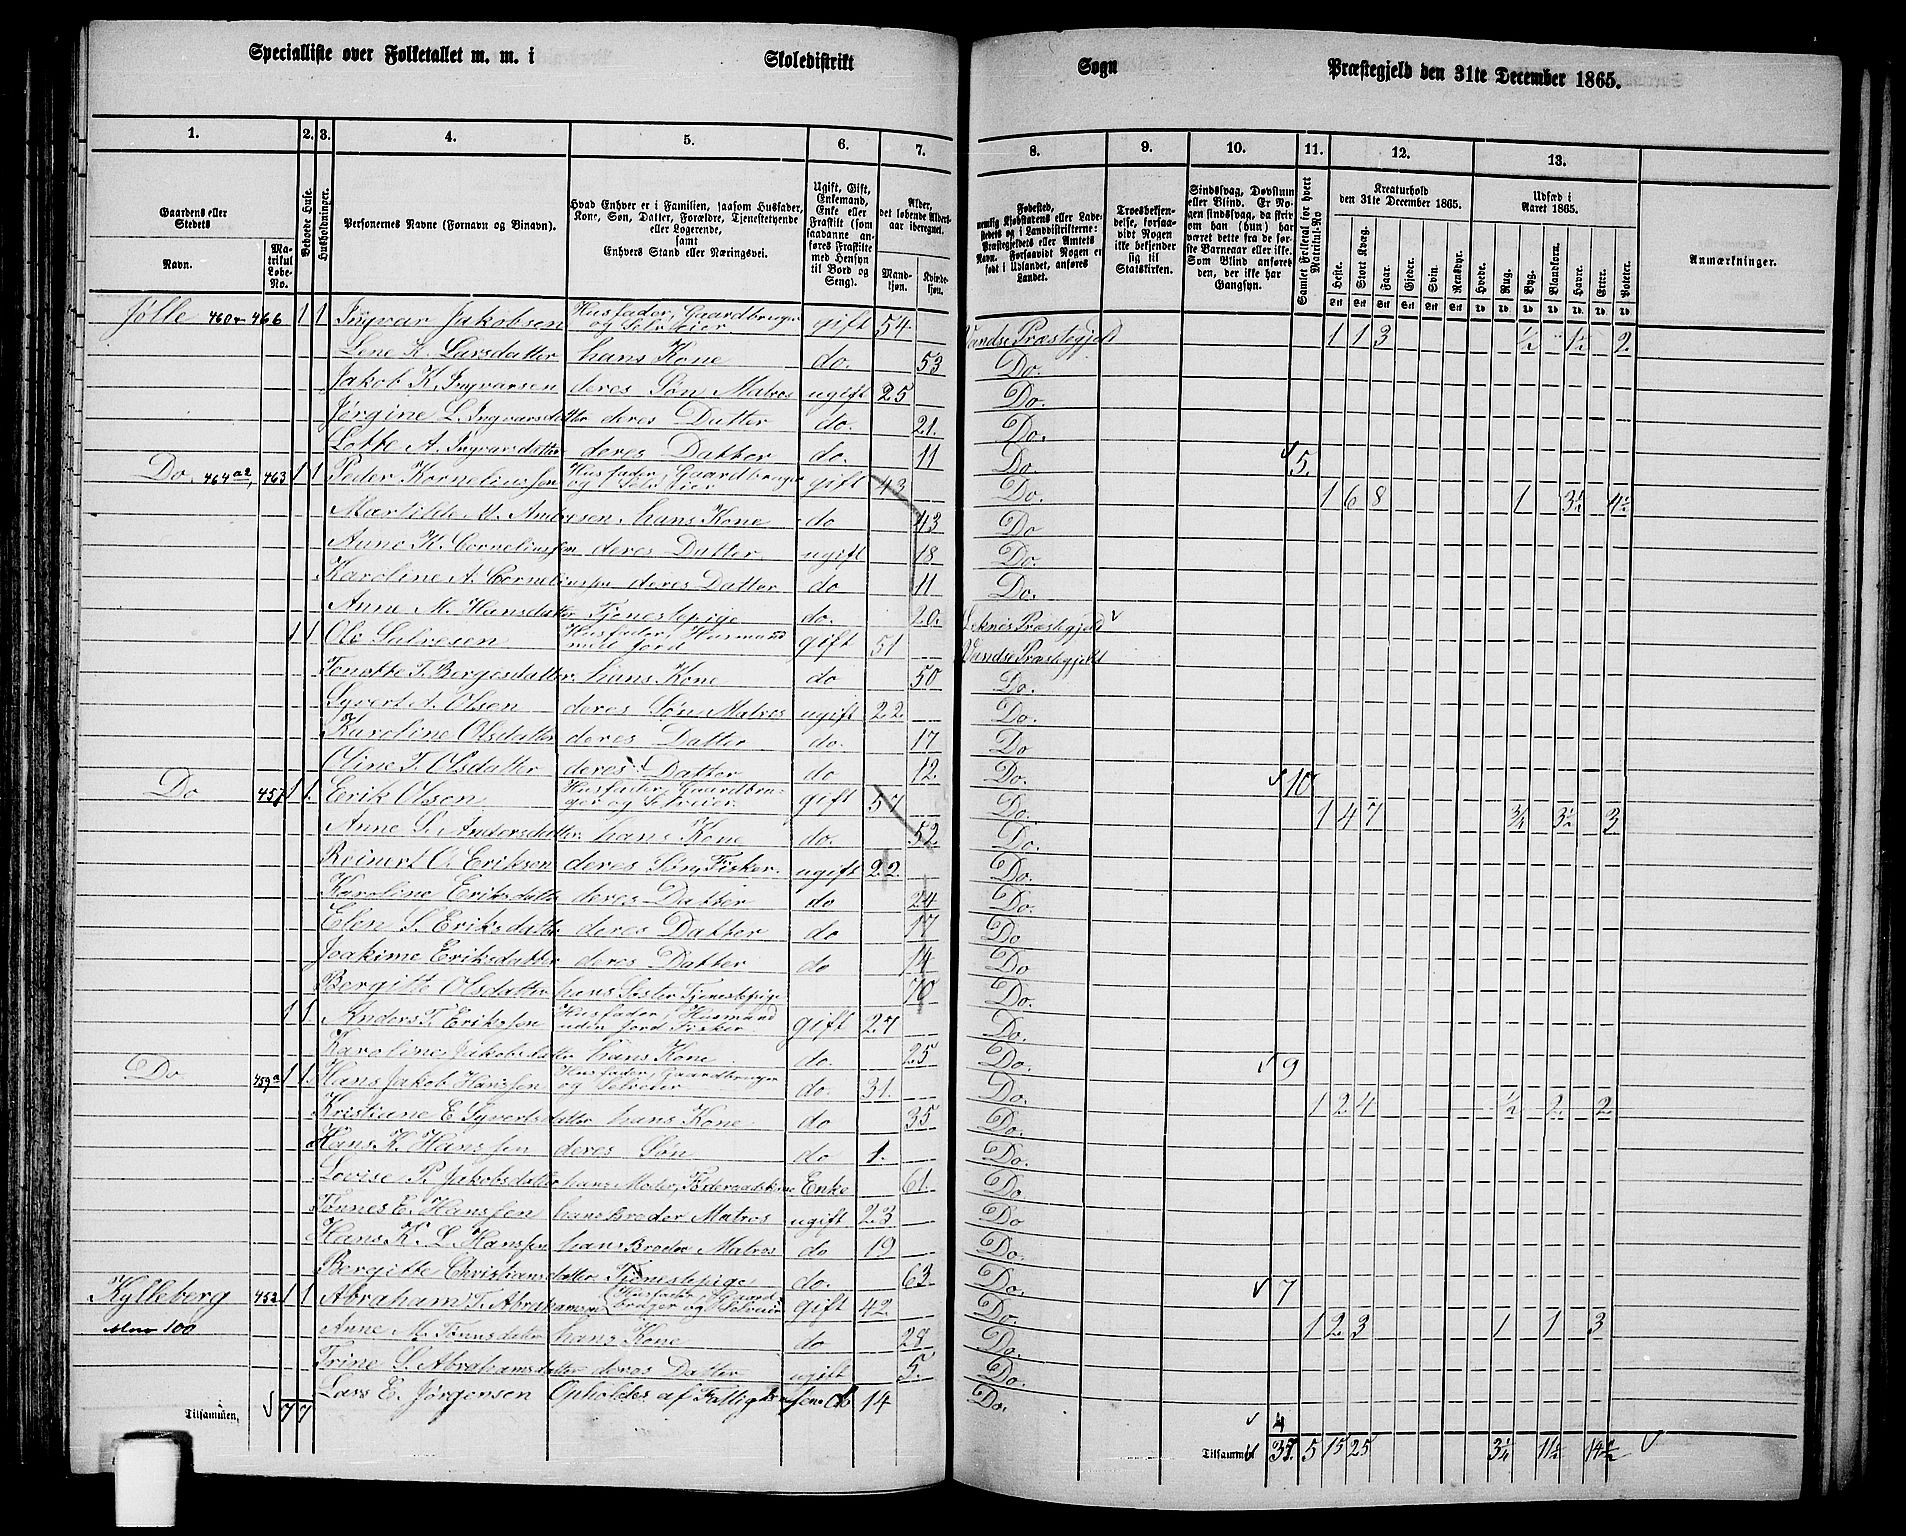 Specialliste over Folketallet m. m. i Skoledistrikt Sogn Præstegjeld den 31te December 1865.
1. 2. 3. 4. 5. 6. 7. 8. 9. 10. 11. 12. 13.
Gaardens eller Stedets Navn. Matrikul Løbe-No.
Beboede Huse.
Husholdninger.
Personernes Navne (Fornavn og Binavn).
Hvad Enhver er i Familien, saasom Husfader, Kone, Søn, Datter, Forældre, Tjenestetyende eller Logerende, samt Enhvers Stand eller Næringsvei.
Ugift, Gift, Enkemand, Enke eller Fraskilt (som saadanne anføres Fraskilte med Hensyn til Bord og Seng).
Alder, det løbende Aldersaar iberegnet. Mandkjøn. Kvindekjøn.
Fødested, nemlig Kjøbstadens eller Ladestedets eller i Landdistrikterne: Præstegjeldets eller Amtets Navn. Forsaavidt Nogen er født i Udlandet, anføres Landet.
Troesbekjendelse, forsaavidt Nogen ikke bekjender sig til Statskirken.
Sindssvag, Døvstum eller Blind. Er Nogen sindssvag, da skrives om han (hun) har været dette fra de første Barneaar eller ikke. Som Blind anføres den, der ikke har Gangsyn.
Samlet Folketal for hvert Matrikul-No
Kreaturhold den 31te December 1865.
Heste. Stort Kvæg. Faar. Gjeder. Svin. Rensdyr.
Udsæd i Aaret 1865.
Hvede. Rug. Byg. Blandkorn. Havre. Erter. Poteter.
Anmærkninger.
Jølle 460 466 1 1 Ingvar Jakobsen Husfader, Gaardbruger og Selveier gift 54 Vandse Præstegjeld 1 1 3 ½ 1½ 2
Lene K. Larsdatter hans Kone do. 53 Do.
Jakob K. Ingvarsen deres Søn Matros ugift 25 Do.
Jørgine L. Ingvarsdatter deres Datter do. 21. Do.
Lotte A. Ingvarsdatter deres Datter do. 11 Do. 5.
Do. 464 a2, 463 1 1 Peder Korneliussen Husfader, Gaardbruger og Selveier gift 43 Do. 1 6 8 1 3½ 4½
M. Andresen hans Kone do 43 Do
Anne K. Corneliussen deres Datter ugift 18 Do.
Karoline A. Corneliussen deres Datter do 11 Do.
Anne M. Hansdatter Tjenestepige do. 20. Præstegjeld
1 1 Ole Salvesen Husfader, Husmand med Jord gift 51 Vandse Præstegjeld
T. Børgesdatter hans Kone do 50 Do.
Syvert A. Olsen deres Søn Matros ugift 22. Do.
Karoline Olsdatter deres Datter do. 17 Do
Oline T. Olsdatter deres Datter do 12. Do. 10.
Do 457 1 1. Eerik Olsen Husfader, Gaardbruger og Selveier. gift 57 Do. 1 4 7 ¾ 3½ 3
Anne S. Andersdatter hans Kone do. 52. Do.
Reinert O. Eriksen deres Søn, Fisker. ugift 22. Do.
Karoline Eriksdatter deres Datter do 24 Do.
Elen S. Eriksdatter deres Datter do 17 Do
Joakime Eriksdatter deres Datter do 14 Do
Bergitte Olsdatter hans Søster Tjenestepige 70 Do.
1 1 Anders T. Erikssen Husfader, Husmand uden Jord Fisker gift 27 Do.
Karoline Jakobsdatter hans Kone do. 25 Do. 9
Do 459a 1 1 Hans Jakob Hanssen Husfader, Gaardbruger og Selveier do. 31. Do. 1 2 4 ½ 2. 2.
Kristiane E. Syvertsdatter hans Kone do 35 Do.
Hans K. Hanssen deres Søn do 1. Do.
Lovise P. Jakobsdatter hans Moder, Enke 61. Do
Tønnes E. Hanssen hans Broder Matros ugift 23 Do
Hans K. L. Hanssen hans Broder Matros do 19 Do.
Bergitte Christiansdatter Tjenestepige do. 63 Do. 7
Kylleberg 452 1 1 Abraham T. Abrahamsen Husfader, Gaardbruger og Selveier gift 42. Do. 1 2 3 1 1 3
100 Anne M. Tønnsdatter hans Kone do 28 Do.
Trine S. Abrahamsdatter deres Datter ugift 5. Do.
Lars E. Jørgensen Opholdes af Fattigkassen do 14 Do. 4
Tilsammen, 7 7 Tilsammen 35. 5 15 25 3¼ 11½ 14½